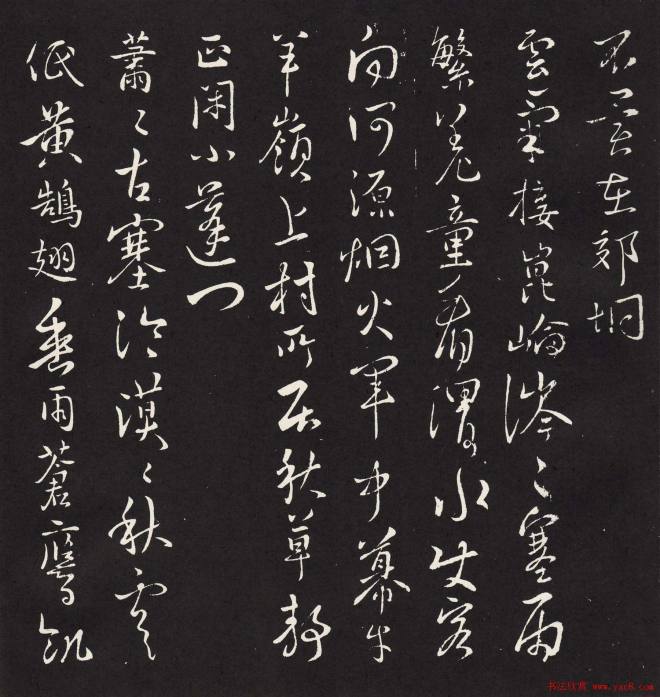 不異在郊坰
雲氣接崑崙涔〻塞雨
繁羌童看渭水使客
向河源烟火軍中幕牛
羊嶺上村所居秋草靜
正閑小蓬門
蕭〻古塞冷漠〻秋雲
低黃鵠翅垂雨蒼鷹飢
书法欣赏 www.yac8.com